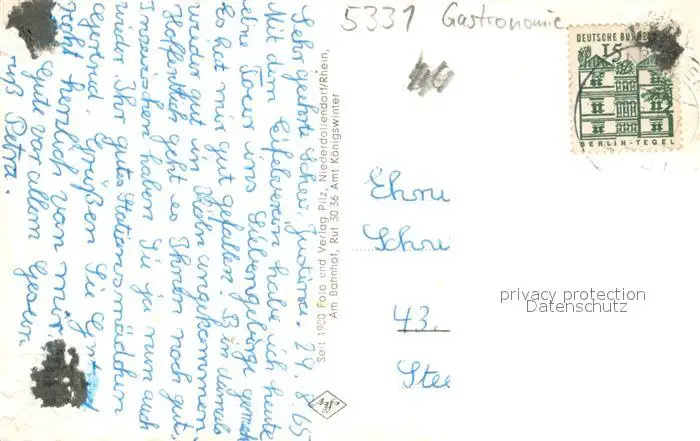 5331 Gastronomie
DEUTSCHE BUNDES
15
BERLIN-TEGEL
Sehr geehrte Schw. Justina. 29.8.65
Mit dem Eifelverein habe ich heute
eine Tour ins Siebengebirge gemacht
Es hat mir gut gefallen. Bin damals
wieder gut in Köln angekommen.
Hoffentlich geht es Ihnen noch gut.
Inzwischen haben Sie ja nun auch
wieder Ihr gutes Stationsmädchen
Gertrud. Grüßen Sie
recht herzlich von mir.
Gute vor allem Gesun
Petra.
Seit 1900 Foto und Verlag Pilz, Niederdollendorf/Rhein,
Am Bahnhof, Ruf 30 36 Amt Königswinter
Ehrw
Schw
43.
Stee
privacy protection
Datenschutz